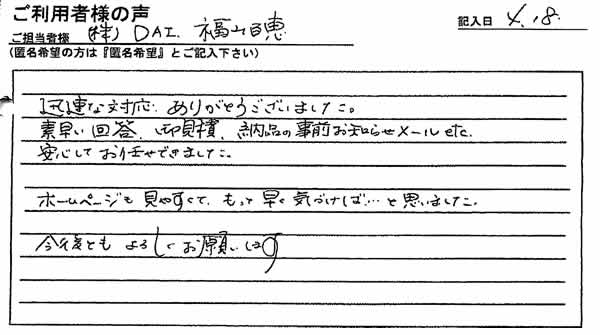 ご利用者様の声
記入日 4.18.
ご担当者様 (株) DAI. 福山百恵
(匿名希望の方は『匿名希望』とご記入下さい)
迅速な対応、ありがとうございました。
素早い回答、御見積、納品の事前お知らせメール etc.
安心してお任せできました。
ホームページも見やすくて、もっと早く気づけば…と思いました。
今後ともよろしくお願いします